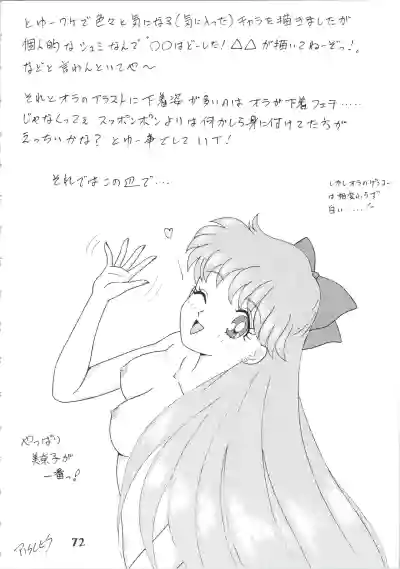 とゆーワケで色々と気になる(気に入った)キャラを描きましたが
個人的なシュミなんで"○○はどーした!△△が描いてねーぞっ!"
などと言わんといてや〜
それとオラのイラストに下着姿が多いのはオラが下着フェチ……
じゃなくってぇスッポンポンよりは何かしら身に付けてた方が
えっちいかな?とゆー事でして いて!
それではこの辺で…
しかしオラのゲンコー
は相変わらず
白い……!
やっぱり
美奈子が
一番っ!
72